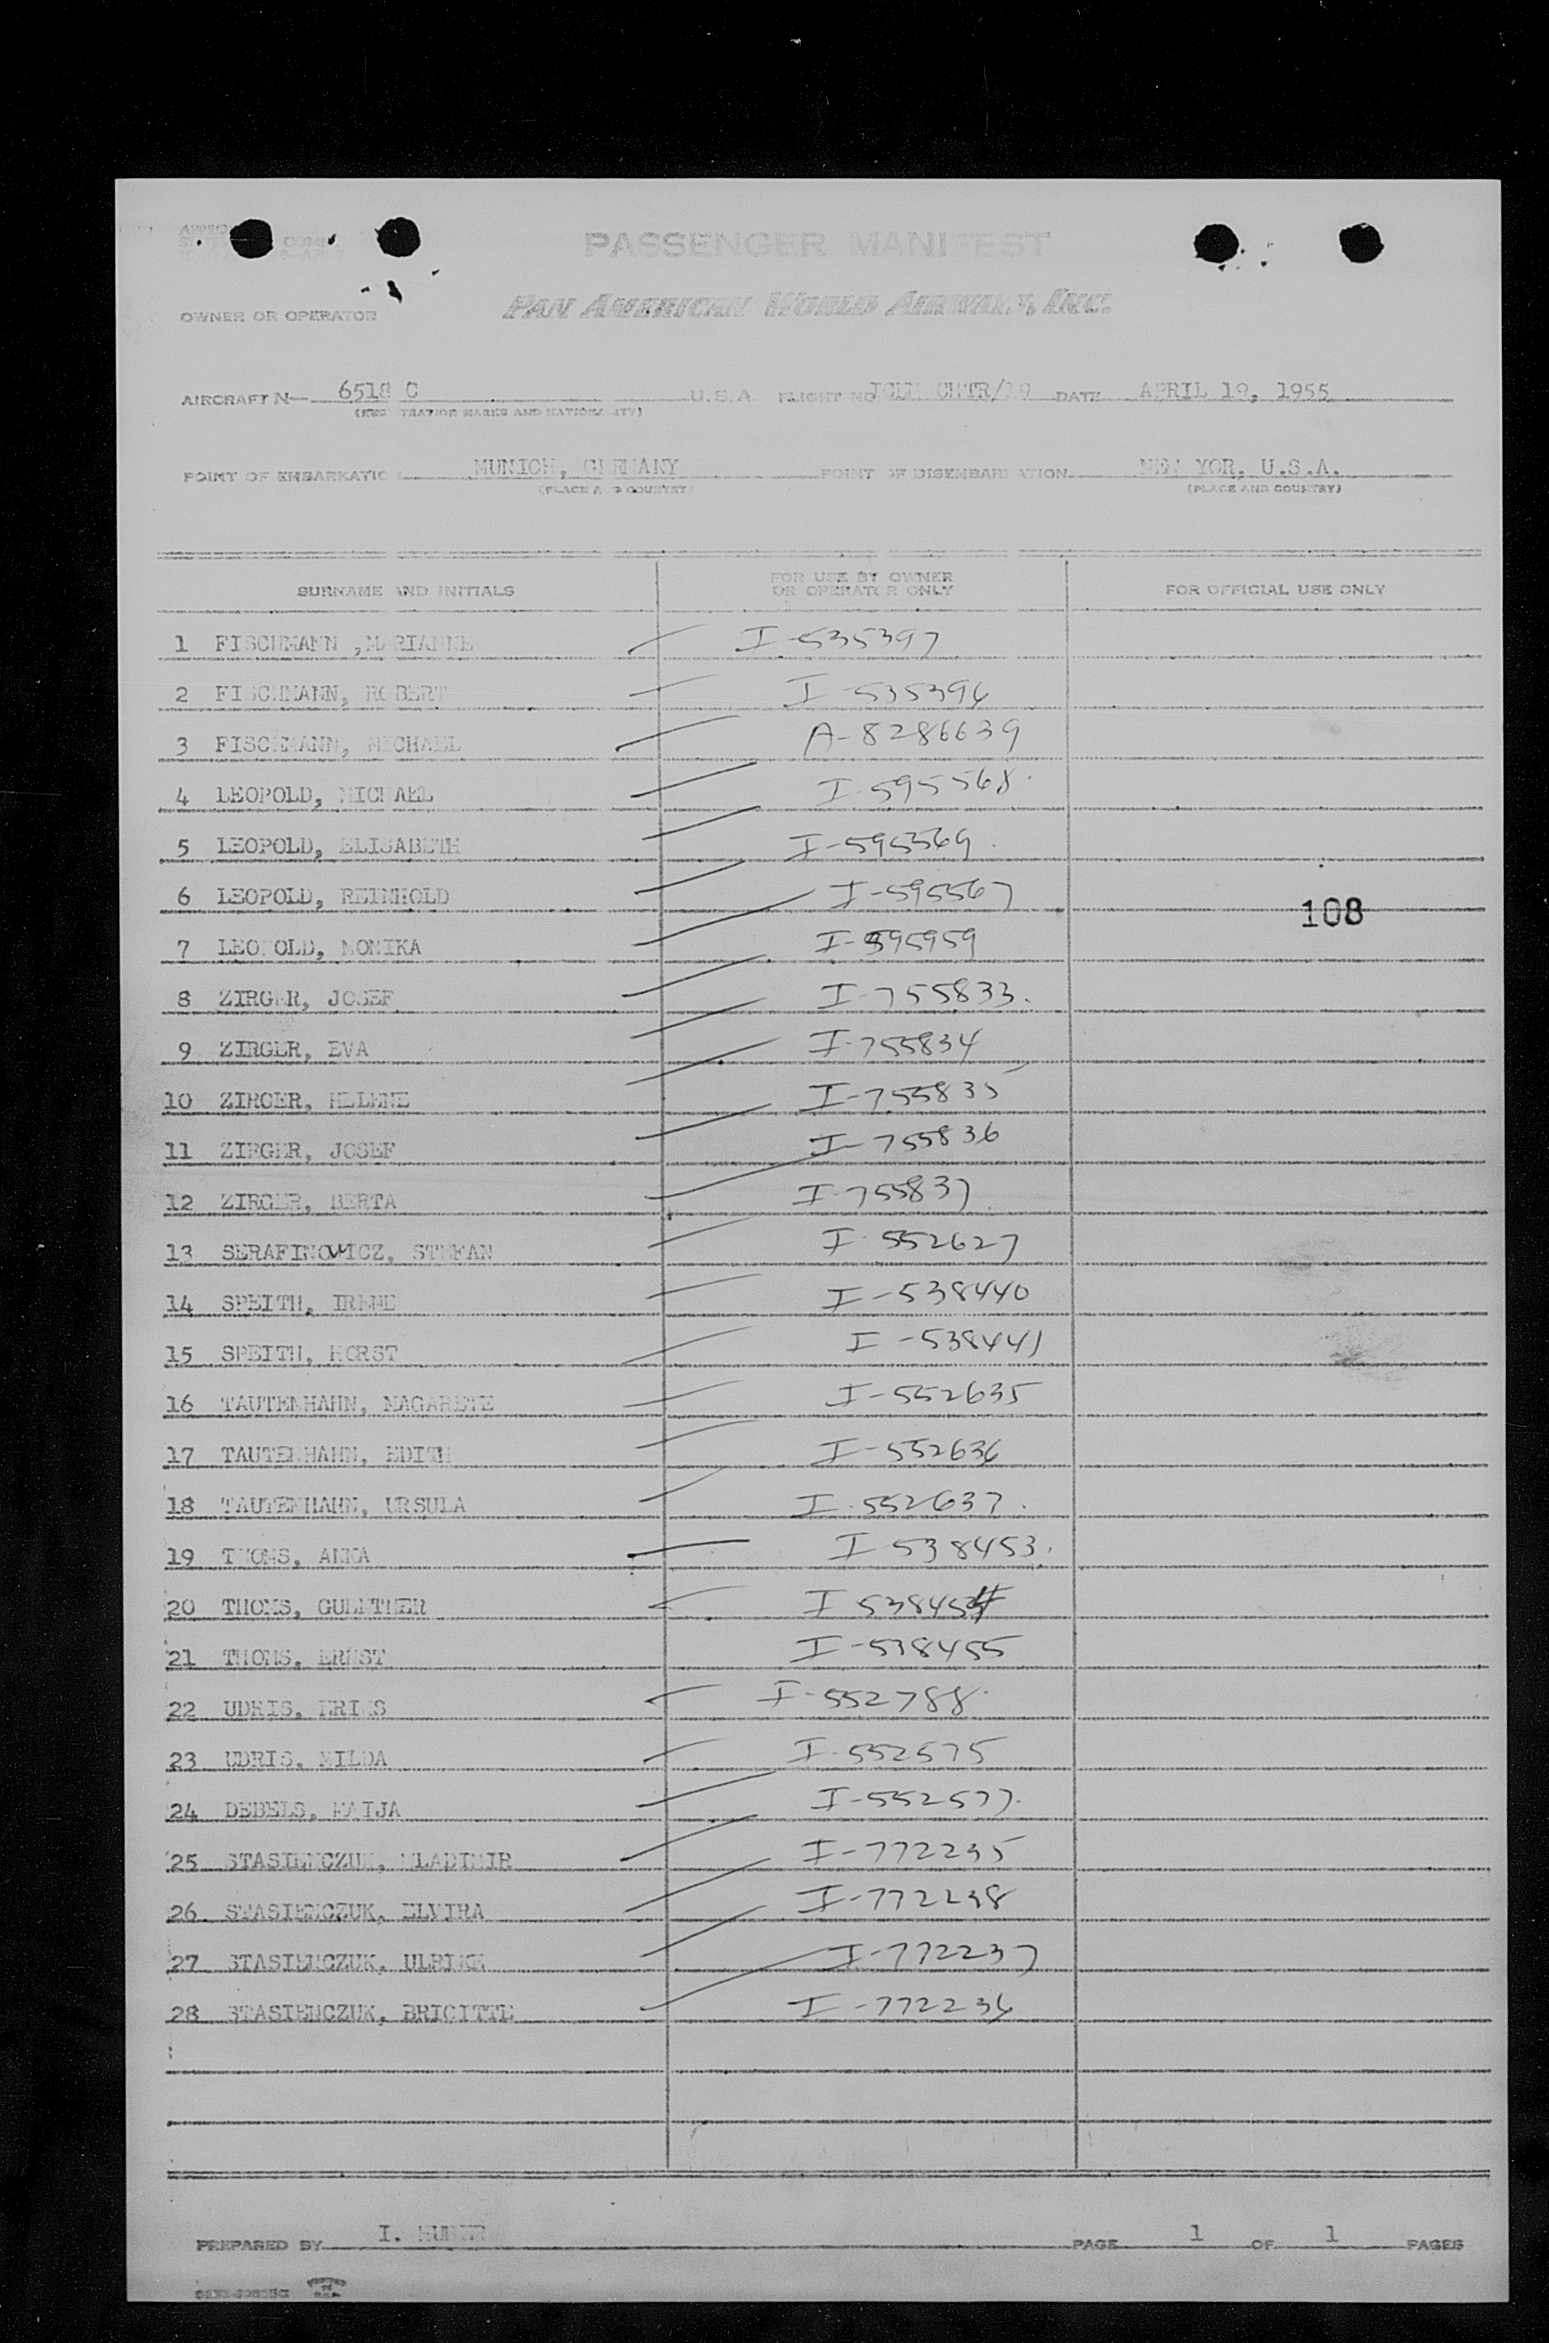 PASSENGER MANIFEST
OWNER OR OPERATOR PAN AMERICAN WORLD AIRWAYS, INC.
AIRCRAFT N— 6518 C U.S.A. FLIGHT NO CHTR/19 DATE APRIL 19, 1955
(REGISTRATION MARKS AND NATIONALITY)
POINT OF EMBARKATION MUNICH, GERMANY POINT OF DISEMBARKATION NEW YOR, U.S.A.
(PLACE AND COUNTRY) (PLACE AND COUNTRY)
SURNAME AND INITIALS FOR USE BY OWNER OR OPERATOR ONLY FOR OFFICIAL USE ONLY
1 FISCHMANN ,MARIANNE I-535397
2 FISCHMANN, ROBERT I-535396
3 FISCHMANN, MICHAEL A-8286639
4 LEOPOLD, MICHAEL I-595568
5 LEOPOLD, ELISABETH I-595569
6 LEOPOLD, REINHOLD I-595567
108
7 LEOPOLD, MONIKA I-595959
8 ZIRGER, JOSEF I-755833
9 ZIRGER, EVA I-755834
10 ZIRGER, HELENE I-755835
11 ZIRGER, JOSEF I-755836
12 ZIRGER, BERTA I-755837
13 SERAFINOWICZ, STEFAN I-552627
14 SPEITH, IRENE I-538440
15 SPEITH, HORST I-538441
16 TAUTENHAHN, MAGARETE I-552635
17 TAUTENHAHN, EDITH I-552636
18 TAUTENHAHN, URSULA I-552637
19 THOMS, ANNA I-538453
20 THOMS, GUENTHER I 538454
21 THOMS, ERNST I-538455
22 UDRIS, ERIKS I-552788
23 UDRIS, MILDA I-552575
24 DEBELS, MAIJA I-552577
25 STASIENCZUK, WLADIMIR I-772235
26 STASIENCZUK, ELVIRA I-772238
27 STASIENCZUK, ULRIKE I-772237
28 STASIENCZUK, BRIGITTE I-772236
PREPARED BY I. PAGE 1 OF 1 PAGES